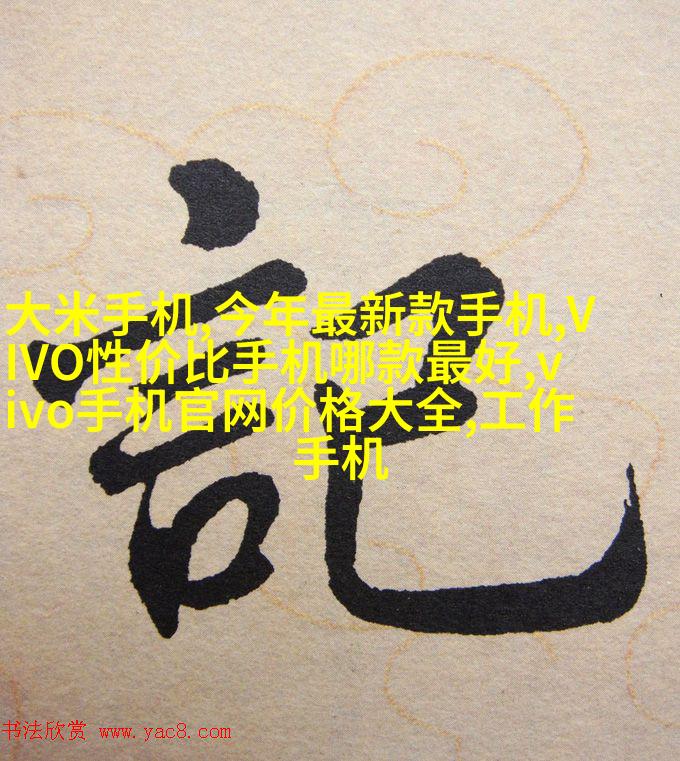 記
大米手机,今年最新款手机,V
IVO性价比手机哪款最好,v
ivo手机官网价格大全,工作
手机
书法欣赏 www.yac8.com